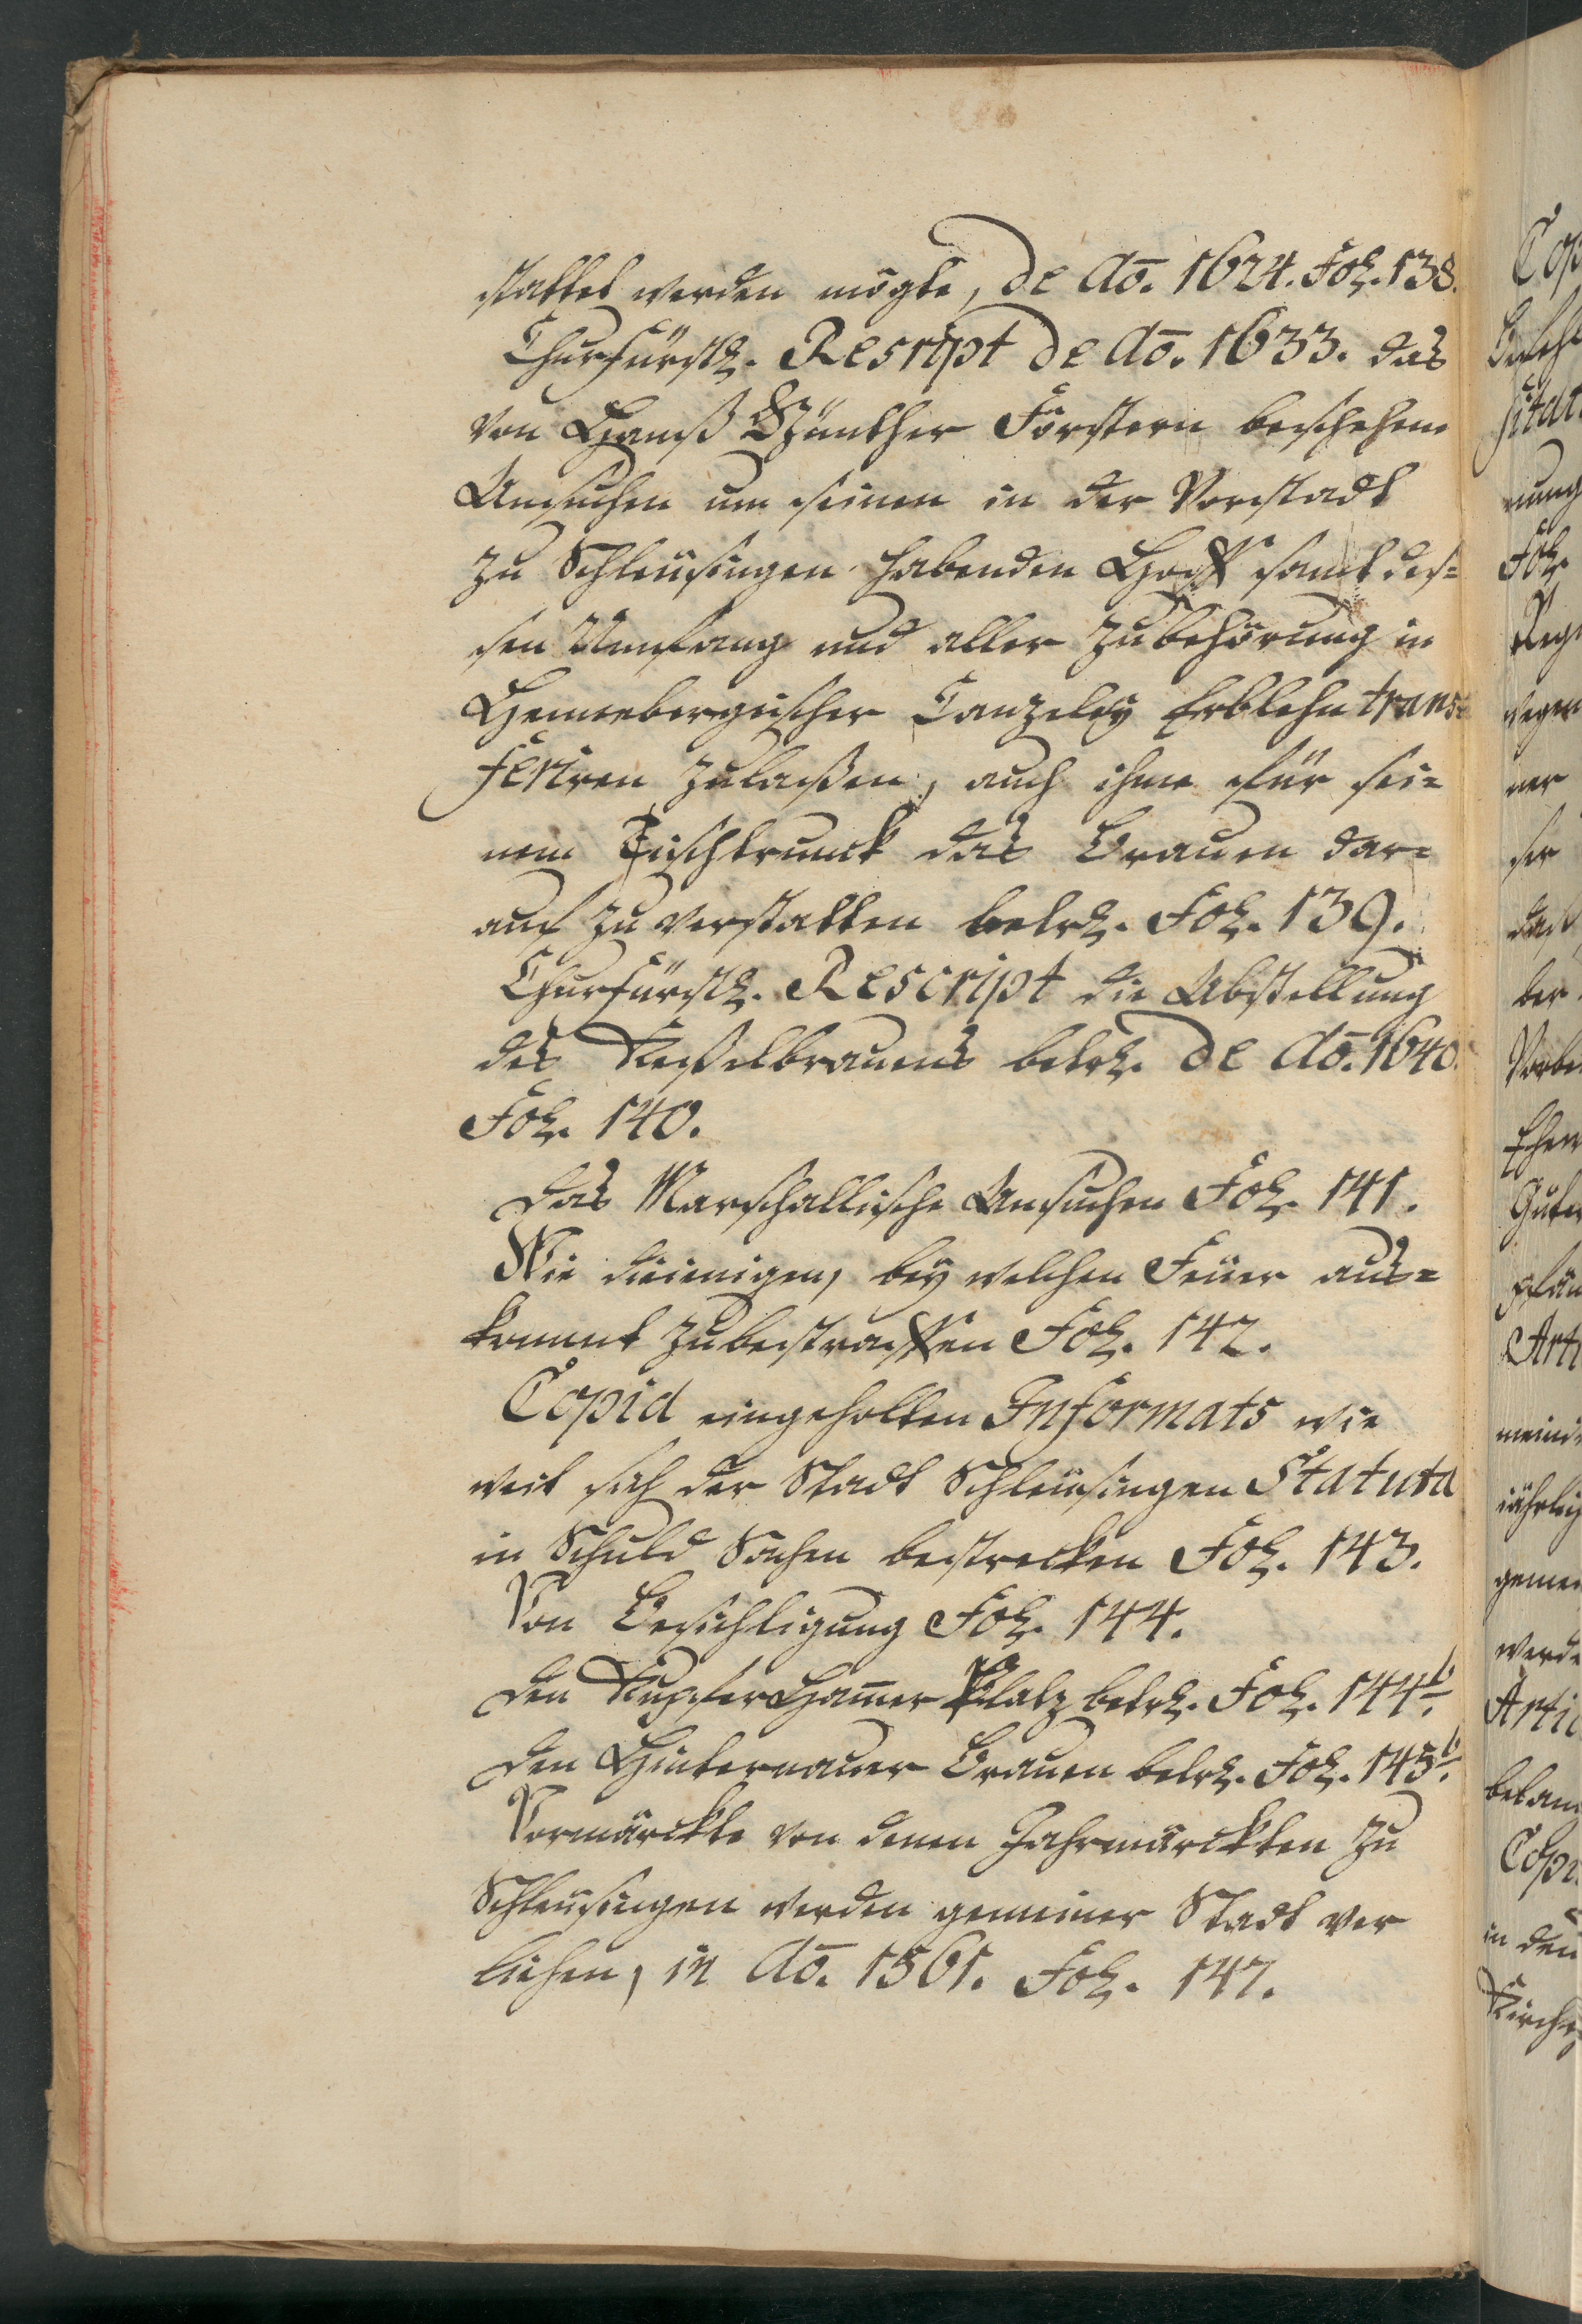 stattet werden mögte, de Aō. 1624. Fol. 138.
Churfürstl. Rescript de Aō. 1633. das
von Hanß Günther Förstern beschehene
Ansuchen um seinen in der Vorstadt
zu Schleusingen habenden Hoff samt des=
sen Umfang und aller Zubehörung in
Hennebergischer Canzeley Erblehn trans=
feriren zulaßen, auch ihme für sei=
nem Tischtrunck das Brauen dar=
auf zu verstatten betrl. Fol. 139.
Churfürstl. Rescript die Abstellung
des Keßelbrauens betrl. de Aō. 1640.
Fol. 140.
Das Marschallische Ansuchen Fol. 141.
Wie dieienigen, bey welchen Feuer aus=
kommt zubestraffen Fol. 142.
Copia eingeholten Informats wie
weit sich der Stadt Schleusingen Statuta
in Schuld Sachen bestrecken Fol. 143.
Von Besichtigung Fol. 144.
Den Kupfer Hamer Platz betrl. Fol. 144b.
Den Hinternauer Brauen betrl. Fol. 145b.
Vormärckte von denen Jahrmärckten zu
Schleusingen werden gemeiner Stadt ver
liehen, in Aō. 1561. Fol. 147.